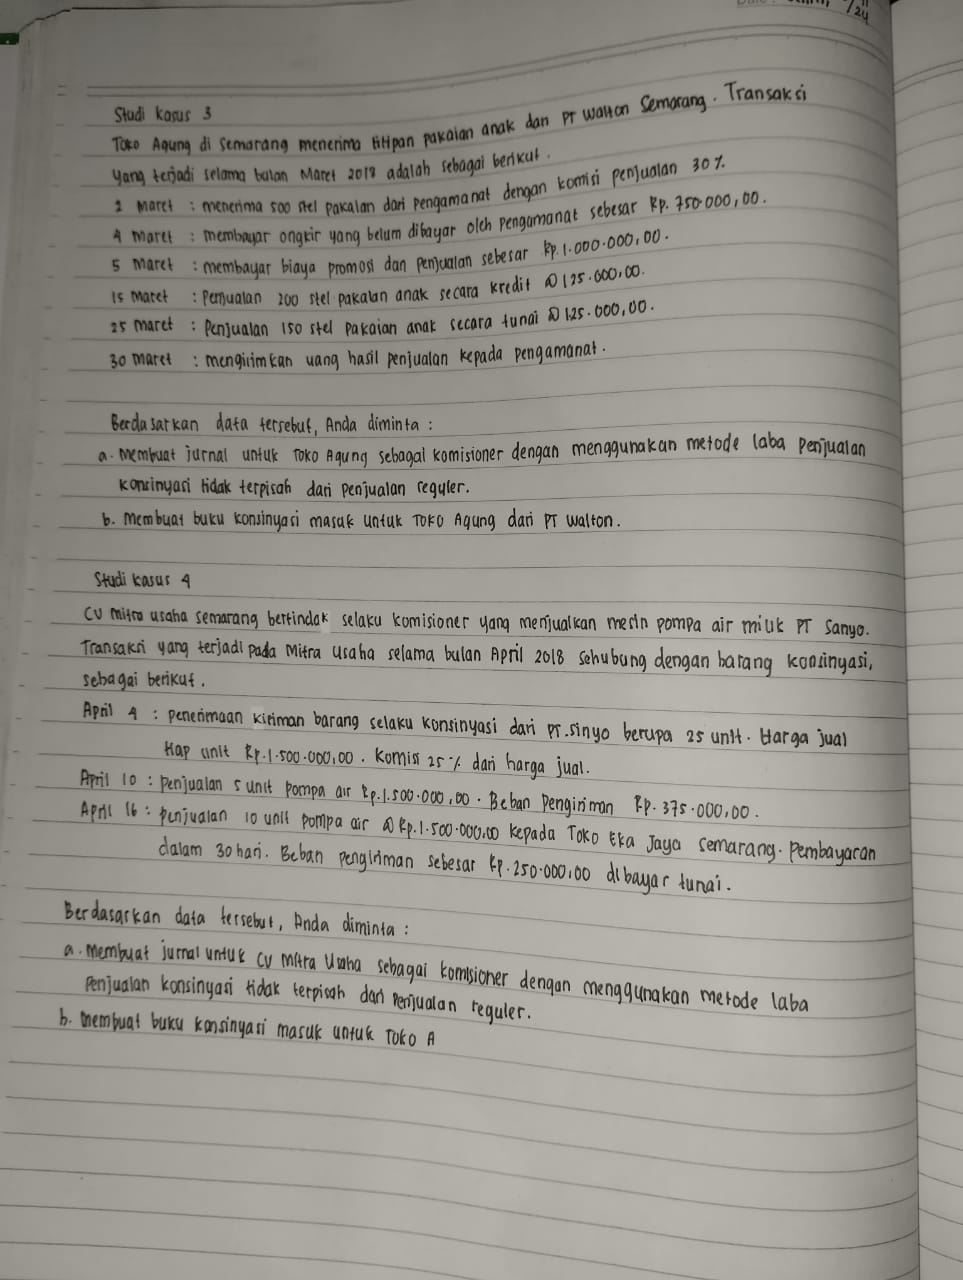 /24
Studi kasus 3
Toko Agung di Semarang menerima titipan pakaian anak dan PT Walton Semarang. Transaksi
yang terjadi selama bulan Maret 2018 adalah sebagai berikut.
2 Maret : menerima 500 stel pakaian dari pengamanat dengan komisi penjualan 30%.
4 Maret : membayar ongkir yang belum dibayar oleh pengamanat sebesar Rp. 750.000,00.
5 Maret : membayar biaya promosi dan penjualan sebesar Rp. 1.000.000,00.
15 Maret : Penjualan 200 stel pakaian anak secara kredit @ 125.000,00.
25 Maret : Penjualan 150 stel pakaian anak secara tunai @ 125.000,00.
30 Maret : mengirimkan uang hasil penjualan kepada pengamanat.
Berdasarkan data tersebut, Anda diminta :
a. Membuat jurnal untuk Toko Agung sebagai komisioner dengan menggunakan metode laba penjualan
konsinyasi tidak terpisah dari penjualan reguler.
b. Membuat buku konsinyasi masuk untuk Toko Agung dari PT Walton.
Studi kasus 4
CV Mitra usaha semarang bertindak selaku komisioner yang menjualkan mesin pompa air milik PT Sanyo.
Transaksi yang terjadi pada Mitra Usaha selama bulan April 2018 sehubung dengan barang konsinyasi,
sebagai berikut.
April 4 : penerimaan kiriman barang selaku konsinyasi dari PT. Sinyo berupa 25 unit. Harga jual
tiap unit Rp. 1.500.000,00. Komisi 25% dari harga jual.
April 10 : penjualan 5 unit pompa air Rp. 1.500.000,00. Beban Pengiriman Rp. 375.000,00.
April 16 : penjualan 10 unit pompa air @ Rp. 1.500.000,00 kepada Toko Eka Jaya Semarang. Pembayaran
dalam 30 hari. Beban pengiriman sebesar Rp. 250.000,00 dibayar tunai.
Berdasarkan data tersebut, Anda diminta :
a. Membuat jurnal untuk CV Mitra Usaha sebagai komisioner dengan menggunakan metode laba
Penjualan konsinyasi tidak terpisah dari Penjualan reguler.
b. Membuat buku konsinyasi masuk untuk Toko A